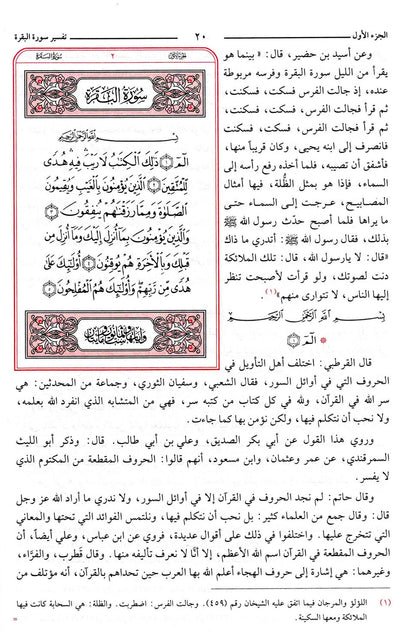 الجزء الأول
٢٠
تفسير سورة البقرة
وعن أسيد بن حضير، قال: «بينما هو
يقرأ من الليل سورة البقرة وفرسه مربوطة
عنده، إذ جالت الفرس، فسكت، فسكنت،
ثم قرأ فجالت الفرس، فسكت، فسكنت،
فسكت، فسكنت، ثم قرأ فجالت الفرس،
فانصرف إلى ابنه يحيى، وكان قريباً منها،
فأشفق أن تصيبه، فلما أخذه رفع رأسه إلى
السماء، فإذا هو بمثل الظُّلة، فيها أمثال
المصابيح، عرجت إلى السماء حتى
ما يراها فلما أصبح حدّث رسول الله ﷺ
بذلك، فقال رسول الله ﷺ: أتدري ما ذاك
«قال: لا يارسول الله، قال: تلك الملائكة
دنت لصوتك، ولو قرأت لأصبحت تنظر
إليها الناس، لا تتوارى منهم»(١).
٢
سُورَةُ البَقَرَة
سُورَةُ البَقَرَةِ
بِسْمِ اللَّهِ الرَّحْمَٰنِ الرَّحِيمِ
الٓمٓ ١ ذَٰلِكَ ٱلْكِتَٰبُ لَا رَيْبَ فِيهِ هُدًى
لِّلْمُتَّقِينَ ٢ ٱلَّذِينَ يُؤْمِنُونَ بِٱلْغَيْبِ وَيُقِيمُونَ
ٱلصَّلَوٰةَ وَمِمَّا رَزَقْنَٰهُمْ يُنفِقُونَ ٣
وَٱلَّذِينَ يُؤْمِنُونَ بِمَآ أُنزِلَ إِلَيْكَ وَمَآ أُنزِلَ مِن
قَبْلِكَ وَبِٱلْءَاخِرَةِ هُمْ يُوقِنُونَ ٤ أُو۟لَٰٓئِكَ عَلَىٰ
هُدًى مِّن رَّبِّهِمْ وَأُو۟لَٰٓئِكَ هُمُ ٱلْمُفْلِحُونَ ٥
بِسْمِ اللَّهِ الرَّحْمَٰنِ الرَّحِيمِ
* الٓمٓ ١
قال القرطبي: اختلف أهل التأويل في
الحروف التي في أوائل السور، فقال الشعبي، وسفيان الثوري، وجماعة من المحدثين: هي
سر الله في القرآن، ولله في كل كتاب من كتبه سر، فهي من المتشابه الذي انفرد الله بعلمه،
ولا نحب أن نتكلم فيها، ولكن نؤمن بها كما جاءت.
وروي هذا القول عن أبي بكر الصديق، وعلي بن أبي طالب. قال: وذكر أبو الليث
السمرقندي، عن عمر وعثمان، وابن مسعود، أنهم قالوا: الحروف المقطعة من المكتوم الذي
لا يفسر.
وقال حاتم: لم نجد الحروف في القرآن إلا في أوائل السور، ولا ندري ما أراد الله عز وجل
بها. قال: وقال جمع من العلماء كثير: بل نحب أن نتكلم فيها، ونلتمس الفوائد التي تحتها والمعاني
التي تتخرج عليها. واختلفوا في ذلك على أقوال عديدة، فروي عن ابن عباس، وعلي أيضاً، أن
الحروف المقطعة في القرآن اسم الله الأعظم، إلا أنّا لا نعرف تأليفه منها. وقال قطرب، والفرّاء،
وغيرهما: هي إشارة إلى حروف الهجاء أعلم الله بها العرب حين تحداهم بالقرآن، أنه مؤتلف من
(١) اللؤلؤ والمرجان فيما اتفق عليه الشيخان رقم (٤٥٩). وجالت الفرس: اضطربت. والظلة: هي السحابة كانت فيها
الملائكة ومعها السكينة.